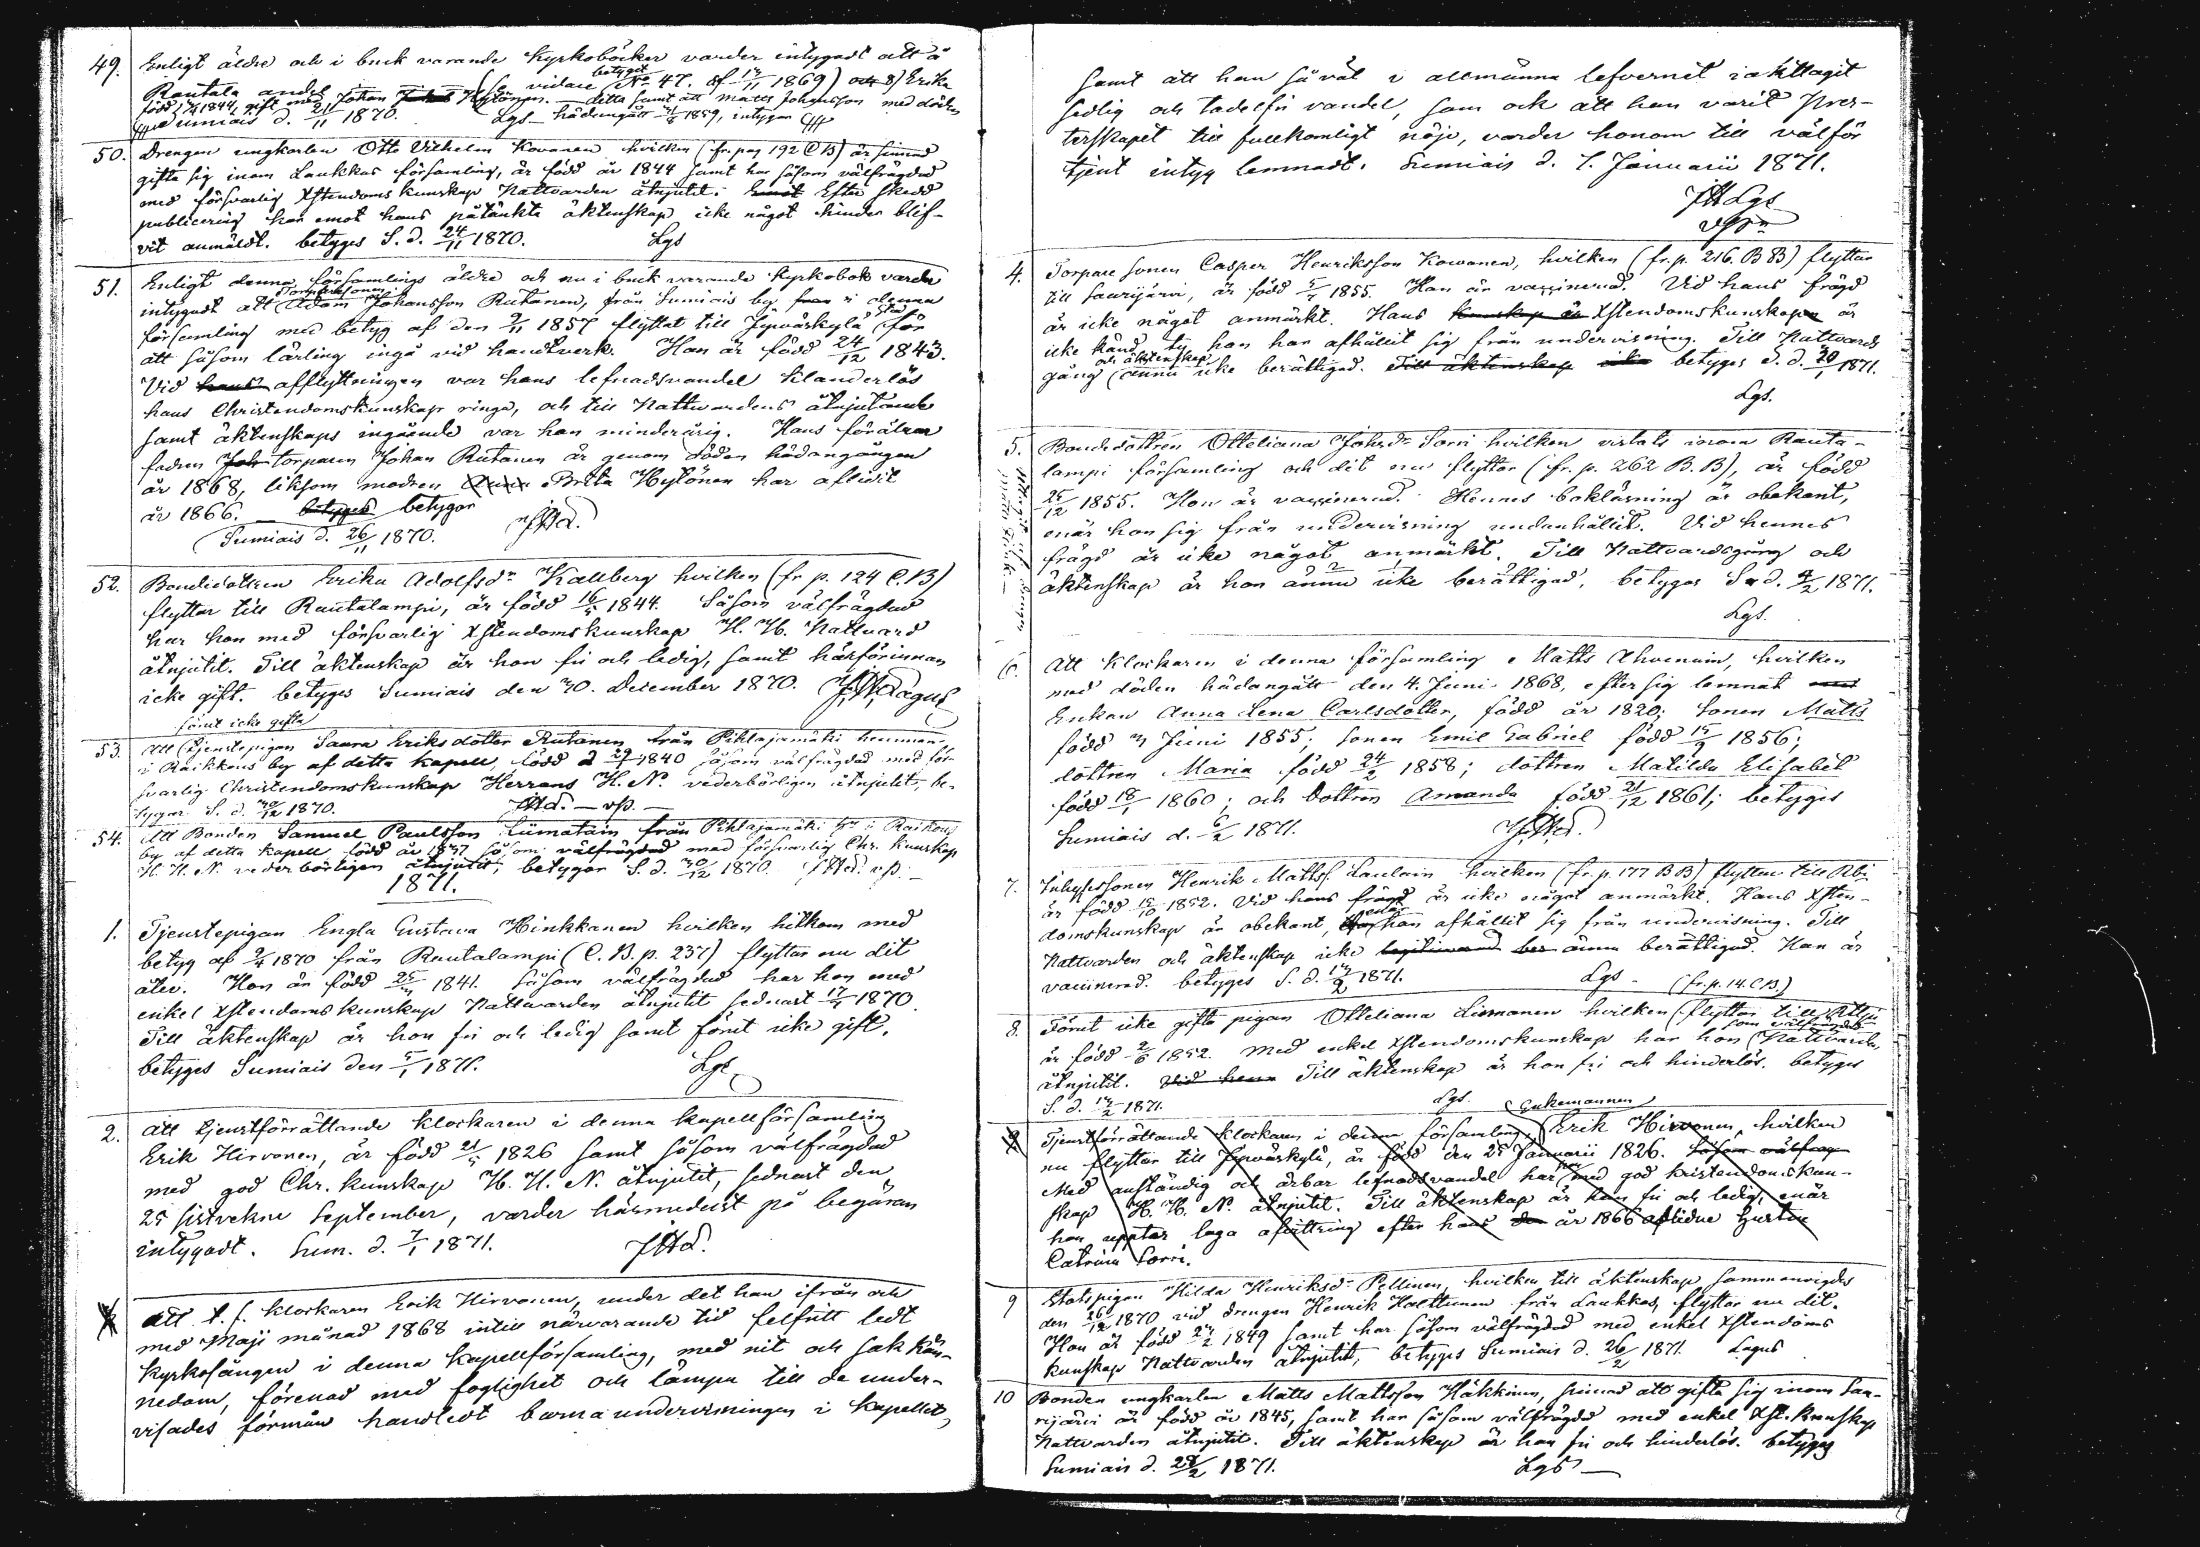 49. Enligt äldre och i bruk varande Kyrkoböcker varder intygadt att å
Rautala andel (se vidare betyget No 47. af 17/11 1869) och 8) Erika
född 1844, gift med Johan Hytönen. detta samt att Matts Johansson med döden
Sumiais d. 21/11 1870. Lgs hädangått 1859, intygar
50. Drengen ungkarlen Otto Vilhelm Kovanen hvilken (fr. pag 192 C B) är sinnad
gifta sig inom Laukkas församling, är född år 1844 samt har såsom välfrägdad
med försvarlig Xstendoms kunskap Nattvarden åtnjutit. Efter skedd
publicering har emot hans påtänkta äktenskap icke något hinder blif-
vit anmäldt. betyges S. d. 24/11 1870. Lgs
51. Enligt denna församlings äldre och nu i bruk varande kyrkobok varder
intygadt att Torparesonen Adam Johansson Rutanen, från Sumiais by i denna
församling med betyg af den 9/11 1857 flyttat till Jyväskylä stad för
att såsom lärling ingå vid handtverk. Han är född 24/12 1843.
Vid hans afflyttningen var hans lefnadsvandel klanderlös
hans Christendomskunskap ringa, och till Nattvardens åtnjutande
samt äktenskaps ingående var han minderårig. Hans föräldrar
fadren torparen Johan Rutanen är genom döden hädangången
år 1868, liksom modren Brita Hytönen har aflidit
år 1866. betyges betygar
Sumiais d. 26/11 1870. JHL.
52. Bondedottren Erika Adolfsdr Kallberg hvilken (fr p. 124 C. B)
flyttar till Rautalampi, är född 16/5 1844. Såsom välfrägdad
har hon med försvarlig Xstendomskunskap H. H. Nattvard
åtnjutit. Till äktenskap är hon fri och ledig, samt härförinnan
icke gift. betyges Sumiais den 30. December 1870. J.H. Lagus
förut icke gifta
53. Att tjenstepigan Saara Eriksdotter Rutanen från Pihlajamäki hemman
i Raikkaus by af detta kapell, född d 1840 såsom välfrägdad med för-
svarlig Christendomskunskap Herrans H. N. vederbörligen åtnjutit, be-
tygar S. d. 30/12 1870. JHL. – vp. –
54. Att Bonden Samuel Paulsson Liimatain från Pihlajamäki hn i Raikaus
by af detta kapell född år 1837 såsom välfrägdad med försvarlig Chr. kunskap
H. H. N. vederbörligen åtnjutit, betygar S. d. 30/12 1870. JHL. vp. –
1871.
1. Tjenstepigan Engla Gustava Hinkkanen hvilken hitkom med
betyg af 9/4 1870 från Rautalampi (C. B. p. 237) flyttar nu dit
åter. Hon är född 25/ 1841. Såsom välfrägdad har hon med
enkel Xstendoms kunskap Nattvarden åtnjutit sednast 17/ 1870.
Till äktenskap är hon fri och ledig samt förut icke gift.
betyges Sumiais den 5/1 1871. Lgs
2. Att tjenstförrättande klockaren i denna kapellförsamling
Erik Hirvonen, är född 21/ 1826 samt såsom välfrägdad
med god Chr. kunskap H. H. N. åtnjutit, sednast den
25 sistvekne September, varder härmedelst på begäran
intygadt. Sum. d. 7/1 1871. JHL.
3 Att t. f. klockaren Erik Hirvonen, under det han ifrån och
med Maji månad 1868 intill närvarande tid felfritt ledt
kyrkosången i denna kapellförsamling, med nit och sakkän-
nedom, förenad med foglighet och lämpa till de under-
visades förmån handledt barnaundervisningen i kapellet,
samt att han så väl i allmänna lefvernet iakttagit
sedlig och tadelfri vandel, som ock att han varit Pres-
terskapet till fullkomligt nöje, varder honom till välför
tjent intyg lemnadt. Sumiais d. 7. Januarii 1871.
JHLgs
vpn
4. Torpare sonen Casper Henriksson Kowanen, hvilken (fr. p. 216. B B) flyttar
till Saarijärvi, är född 5/ 1855. Han är vaxinerad. Vid hans frägd
är icke något anmärkt. Hans kunskap är Xstendomskunskapen är
icke känd, ty han har afhållit sig från undervisning. Till Nattvards
gång och äktenskap ännu icke berättigad. Till äktenskap icke betyges S. d. 20/1 1871.
Lgs.
5. Bondedottren Otteliana Johsdr Sorri hvilken vistats inom Rauta-
lampi församling och dit nu flyttar (fr. p. 262 B. B), är född
25/12 1855. Hon är vaxinerad. Hennes bokläsning är obekant,
enär hon sig från undervisning undanhållit. Vid hennes
frägd är icke något anmärkt. Till Nattvardsgång och
äktenskap är hon ännu icke berättigad, betyges S. d. 4/2 1871.
Lgs.
6. Att klockaren i denna församling Matts Ahvenain, hvilken
med döden hädangått den 4. Juni 1868, efter sig lemnat
Enkan Anna Lena Carlsdotter, född år 1820; Sonen Matts
född 3 Juni 1855; Sonen Emil Gabriel född 15/ 1856;
döttren Maria född 24/2 1858; döttren Matilda Elisabet
född 18/1 1860; och dottren Amanda född 21/12 1861; betyges
Sumiais d. 6/2 1871. JHL.
7. Inhysessonen Henrik Mattss Laulain hvilken (fr. p. 177 B B) flyttar till Abi
är född 15/10 1852. Vid hans frägd är icke något anmärkt. Hans Xsten-
domskunskap är obekant, enär han afhållit sig från undervisning. Till
Nattvarden och äktenskap icke legitimerad ännu berättigad. Han är
vaccinerad. betyges S. d. 12/2 1871. Lgs – (fr. p. 14. C B)
8. Förut icke gifta pigan Otteliana Liimanen hvilken flyttar till
är född 2/6 1852. Med enkel Xstendomskunskap har hon som välfrägdad Nattvarden
åtnjutit. Vid henn Till äktenskap är hon fri och hinderlös. betyges
S. d. 12/2 1871. Lgs. Enkemannen
9 Tjenstförrättande klockaren i denna församling, Erik Hirvonen, hvilken
nu flyttar till Jyväskylä, är född den 25 Januarii 1826. Såsom välfräg
Med anständig och ärbar lefnadsvandel har han med god kristendomskun-
skap H. H. N. åtnjutit. Till äktenskap är han fri och ledig, enär
han upptar laga afvittring efter hans år 1866 aflidne hustru
Catrina Sorri.
9 Statspigan Hilda Henriksdr Pellinen, hvilken till äktenskap sammanvigdes
den 26/12 1870 vid drengen Henrik Halttunen från Laukkas, flyttar nu dit.
Hon är född 25/2 1849 samt har såsom välfrägdad med enkel Xstendoms
kunskap Nattvarden åtnjutit, betyges Sumiais d. 26/2 1871. Lagus
10 Bonden ungkarlen Matts Mattsson Häkkinen, sinnad att gifta sig inom Saa-
rijärvi är född år 1845, samt har såsom välfrägdad med enkel Xst. kunskap
Nattvarden åtnjutit. Till äktenskap är han fri och hinderlös. betyges
Sumiais d. 28/2 1871. Lgs –